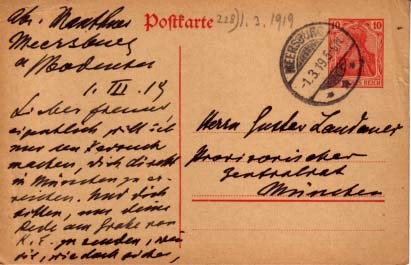 Postkarte
228) 1. 3. 1919
10 10
MEERSBURG
-1.3.19.5-
REICH
Abs. Mauthner
Meersburg
a/Bodensee
1. III. 19
Lieber Freund
eigentlich will ich
nur den Versuch
machen, dich direkt
in München zu er-
reichen. Und dich
bitten, mir deine
Rede am Grabe von
K. E. zu senden,
Herrn Gustav Landauer
Provisorischer
Zentralrat
München